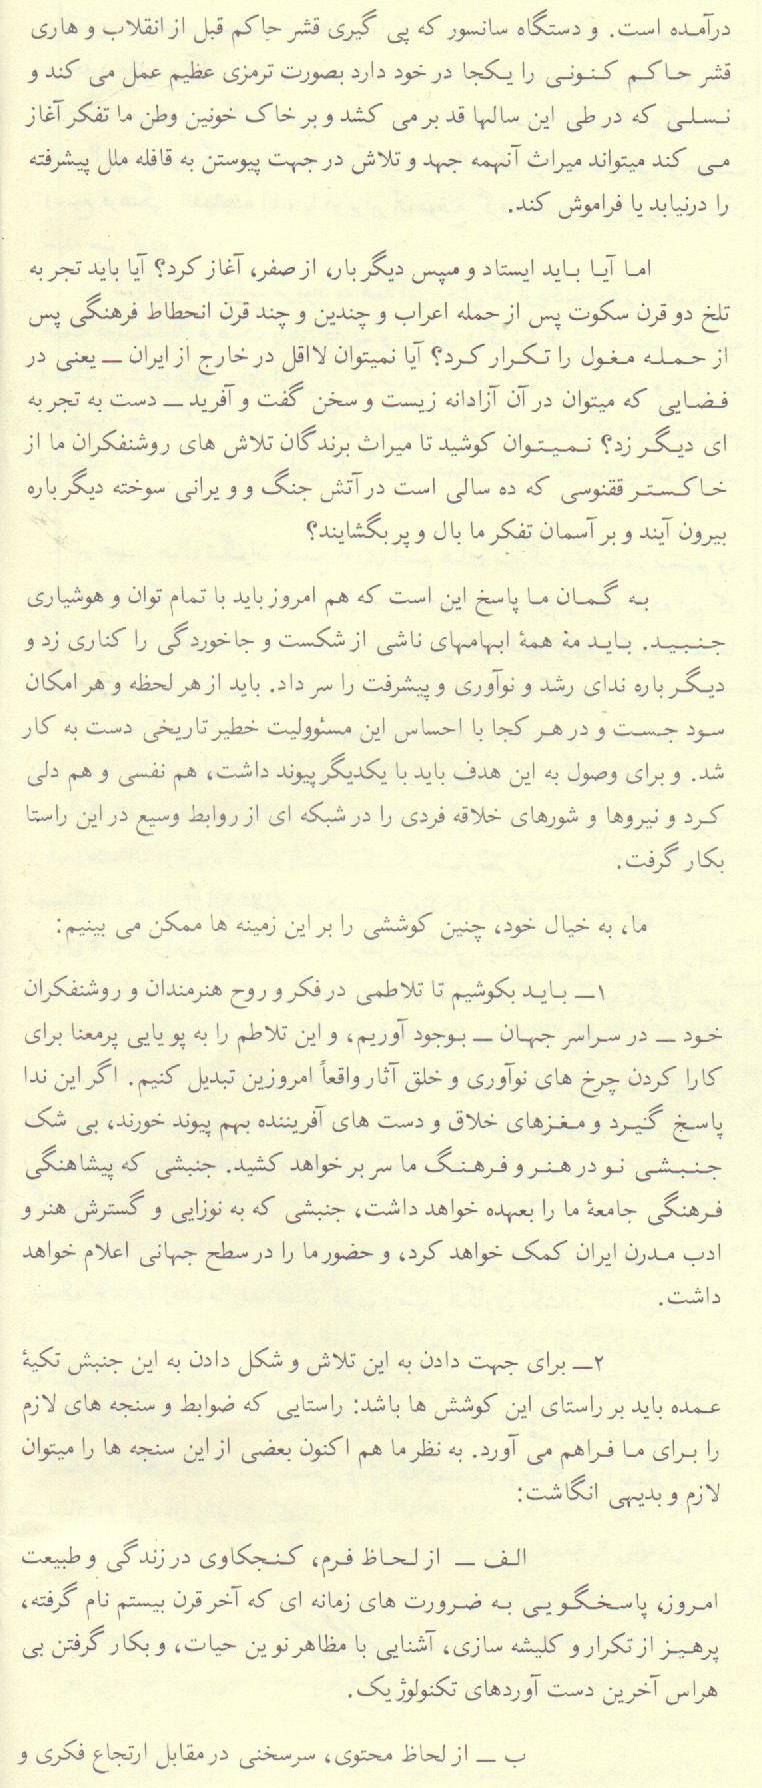 درآمده است. و دستگاه سانسور که پی گیری قشر حاکم قبل از انقلاب و هاری
قشر حاکم کنونی را یکجا در خود دارد بصورت ترمزی عظیم عمل می کند و
نسلی که در طی این سالها قد بر می کشد و بر خاک خونین وطن ما تفکر آغاز
می کند میتواند میراث آنهمه جهد و تلاش در جهت پیوستن به قافله ملل پیشرفته
را درنیابد یا فراموش کند.
اما آیا باید ایستاد و سپس دیگر بار، از صفر، آغاز کرد؟ آیا باید تجربه
تلخ دو قرن سکوت پس از حمله اعراب و چندین و چند قرن انحطاط فرهنگی پس
از حمله مغول را تکرار کرد؟ آیا نمیتوان لااقل در خارج از ایران ــ یعنی در
فضایی که میتوان در آن آزادانه زیست و سخن گفت و آفرید ــ دست به تجربه
ای دیگر زد؟ نمیتوان کوشید تا میراث برندگان تلاش های روشنفکران ما از
خاکستر ققنوسی که ده سالی است در آتش جنگ و ویرانی سوخته دیگر باره
بیرون آیند و بر آسمان تفکر ما بال و پر بگشایند؟
به گمان ما پاسخ این است که هم امروز باید با تمام توان و هوشیاری
جنبید. باید مهٔ همهٔ ابهامهای ناشی از شکست و جاخوردگی را کناری زد و
دیگر باره ندای رشد و نوآوری و پیشرفت را سر داد. باید از هر لحظه و هر امکان
سود جست و در هر کجا با احساس این مسئوولیت خطیر تاریخی دست به کار
شد. و برای وصول به این هدف باید با یکدیگر پیوند داشت، هم نفسی و هم دلی
کرد و نیروها و شورهای خلاقه فردی را در شبکه ای از روابط وسیع در این راستا
بکار گرفت.
ما، به خیال خود، چنین کوششی را بر این زمینه ها ممکن می بینیم:
۱ــ باید بکوشیم تا تلاطمی در فکر و روح هنرمندان و روشنفکران
خود ــ در سراسر جهان ــ بوجود آوریم، و این تلاطم را به پویایی پرمعنا برای
کارا کردن چرخ های نوآوری و خلق آثار واقعاً امروزین تبدیل کنیم. اگر این ندا
پاسخ گیرد و مغزهای خلاق و دست های آفریننده بهم پیوند خورند، بی شک
جنبشی نو در هنر و فرهنگ ما سر بر خواهد کشید. جنبشی که پیشاهنگی
فرهنگی جامعهٔ ما را بعهده خواهد داشت، جنبشی که به نوزایی و گسترش هنر و
ادب مدرن ایران کمک خواهد کرد، و حضور ما را در سطح جهانی اعلام خواهد
داشت.
۲ــ برای جهت دادن به این تلاش و شکل دادن به این جنبش تکیهٔ
عمده باید بر راستای این کوشش ها باشد: راستایی که ضوابط و سنجه های لازم
را برای ما فراهم می آورد. به نظر ما هم اکنون بعضی از این سنجه ها را میتوان
لازم و بدیهی انگاشت:
الف ــ از لحاظ فرم، کنجکاوی در زندگی و طبیعت
امروز، پاسخگویی به ضرورت های زمانه ای که آخر قرن بیستم نام گرفته،
پرهیز از تکرار و کلیشه سازی، آشنایی با مظاهر نوین حیات، و بکار گرفتن بی
هراس آخرین دست آوردهای تکنولوژیک.
ب ــ از لحاظ محتوی، سرسختی در مقابل ارتجاع فکری و